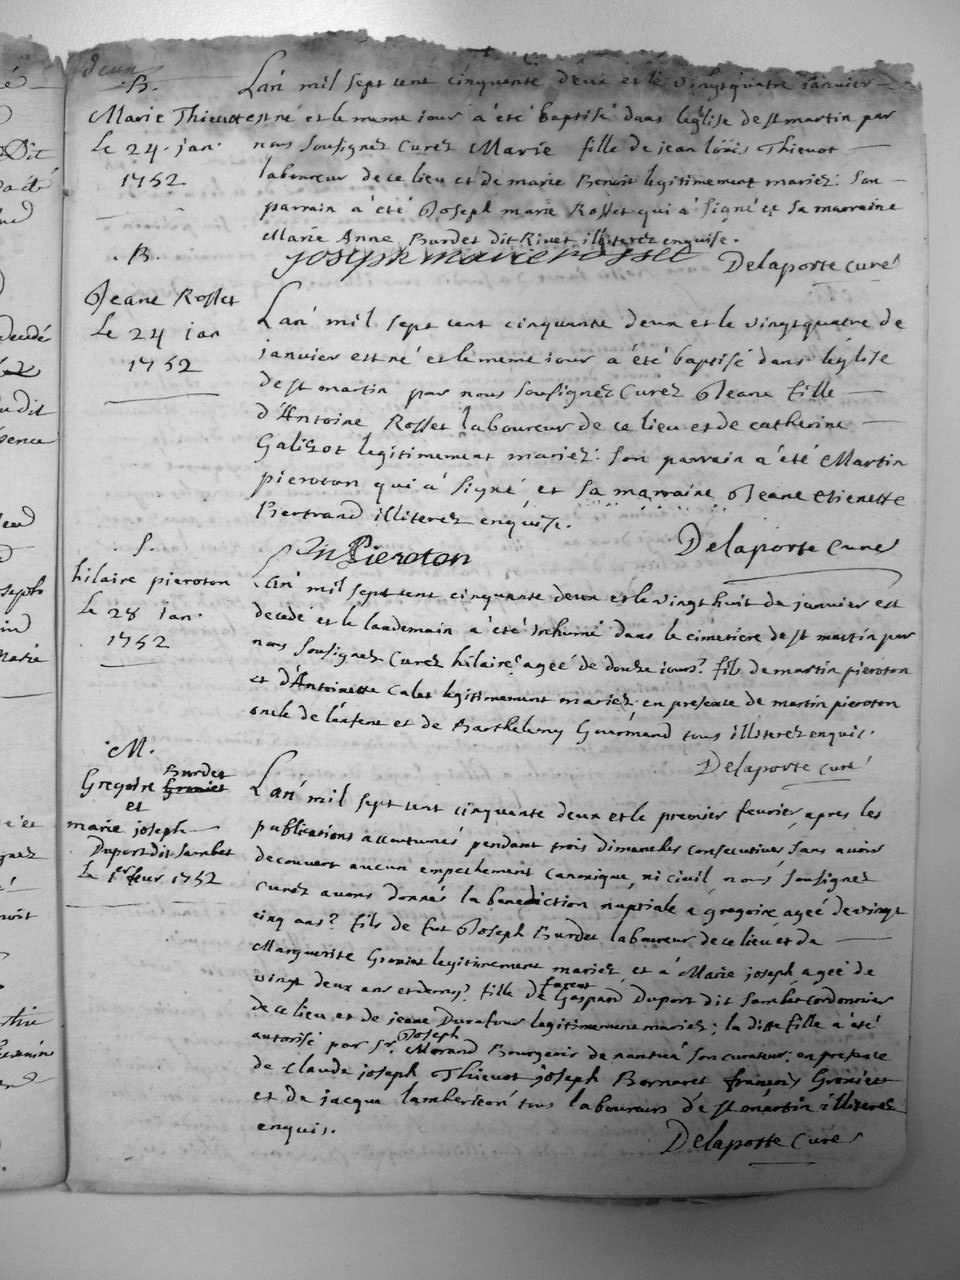 deux
B.
Marie Thievot
Le 24. jan.
1752
Lan mil sept cent cinquante deux et le vingtquatre janvier
est né et le meme jour a été baptisé dans leglise de st martin par
nous sousignez Curez Marie fille de jean Thievot
laboureur de ce lieu et de marie Benoit legitimement mariez: son
parrain a été Joseph marie Rosset qui a signé et sa marraine
Marie Anne Burdet dit Rivet illiterez enquise.
joseph marie rosset Delaporte curé
B.
Jeane Rosset
Le 24 jan
1752
Lan mil sept cent cinquante deux et le vingtquatre de
janvier est né et le meme jour a été baptisé dans leglise
de st martin par nous sousignez Curez Jeane fille
d'Antoine Rosset laboureur de ce lieu et de catherine
legitimement mariez: son parrain a été Martin
pieroton qui a signé et sa marraine Jeane etienette
Bertrand illiterez enquise.
Pieroton Delaporte Curé
S.
hilaire pieroton
Le 28 jan.
1752
Lan mil sept cent cinquante deux et le vingt huit de janvier est
decedé et le landemain a été Inhumé dans le cimetiere de st martin par
nous sousignez Curez hilaire ageé de douze jours fils de martin pieroton
et d'Antoinette Calet legitimement mariez; en presence de martin pieroton
oncle de et de Barthelemy Gourmand tous illiterez enquis.
Delaporte curé
M.
Gregoire Burdet
et
marie joseph
Duport dit Jambet
Le 1er feur 1752
Lan mil sept cent cinquante deux et le premier fevrier apres les
publications accoutumés pendant trois dimanches consecutives sans avoir
decouvert aucun empechement canonique, ni civil nous sousignez
Curez avons donnés la benediction nuptiale a gregoire ageé de vingt
cinq ans fils de fut Joseph Burdet laboureur de ce lieu et de
Marguerite legitimement mariez et a Marie joseph ageé de
vingt deux ans et demy fille de Gaspard Duport dit Jambet cordonnier
de ce lieu et de jeane Durafour legitimement mariez; la ditte fille a été
autorisé par sr. Joseph Morand Bourgeois de nantua son curateur: en presence
de Claude joseph Thievot joseph Bornaret françois
et de jacque tous laboureurs de st martin illiterez
enquis.
Delaporte Curé